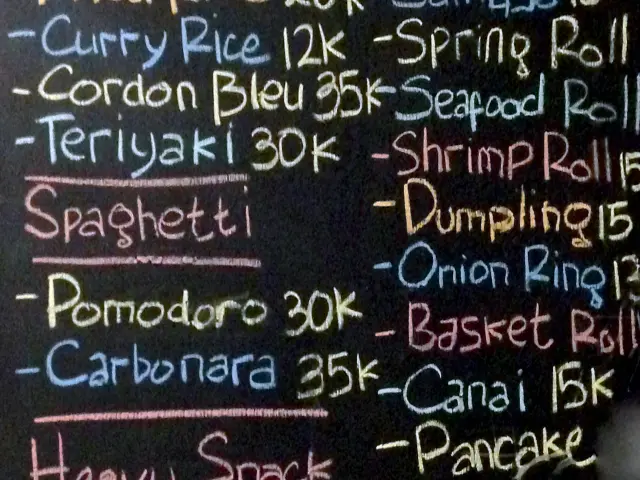 20K
-Curry Rice 12K
-Cordon Bleu 35K
-Teriyaki 30K
Spaghetti
-Pomodoro 30K
-Carbonara 35K
Heavy Snack
-Spring Roll
-Seafood Roll
-Shrimp Roll 15
-Dumpling 15
-Onion Ring
-Basket Roll
-Canai 15K
-Pancake